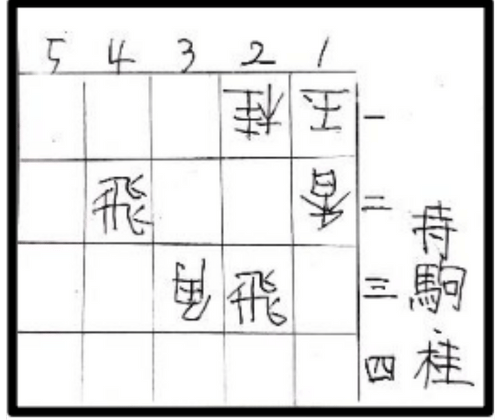 5 4 3 2 1
桂 玉 一
飛 香 二
飛 三
四
持駒 桂